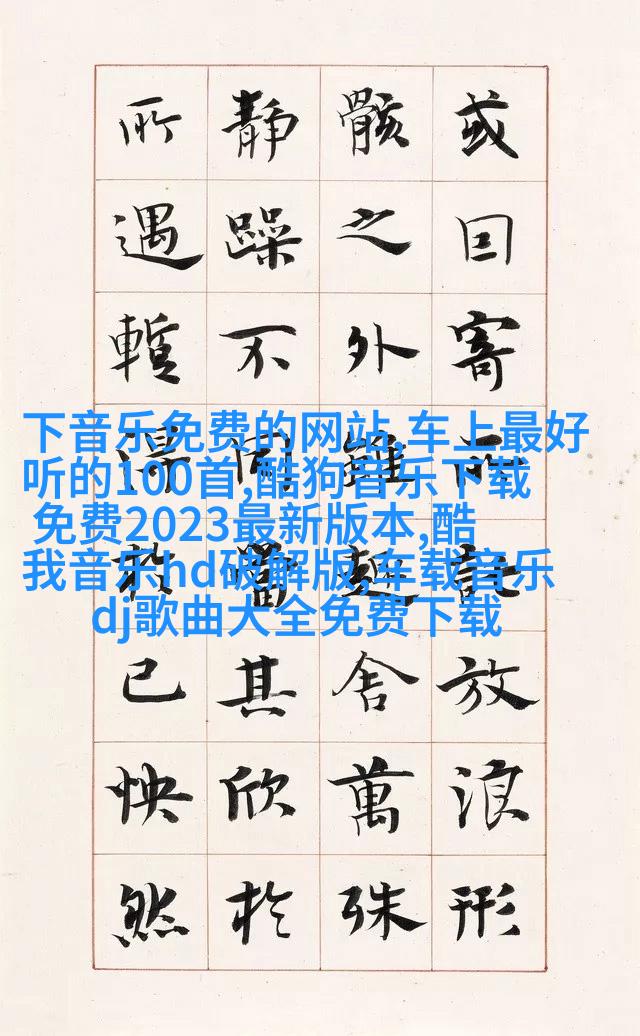 或囙寄所託放浪形
骸之外雖趣舍萬殊
靜躁不同當其欣於
所遇暫得於已怏然
下音乐免费的网站,车上最好
听的100首,酷狗音乐下载
免费2023最新版本,酷
我音乐hd破解版,车载音乐
dj歌曲大全免费下载